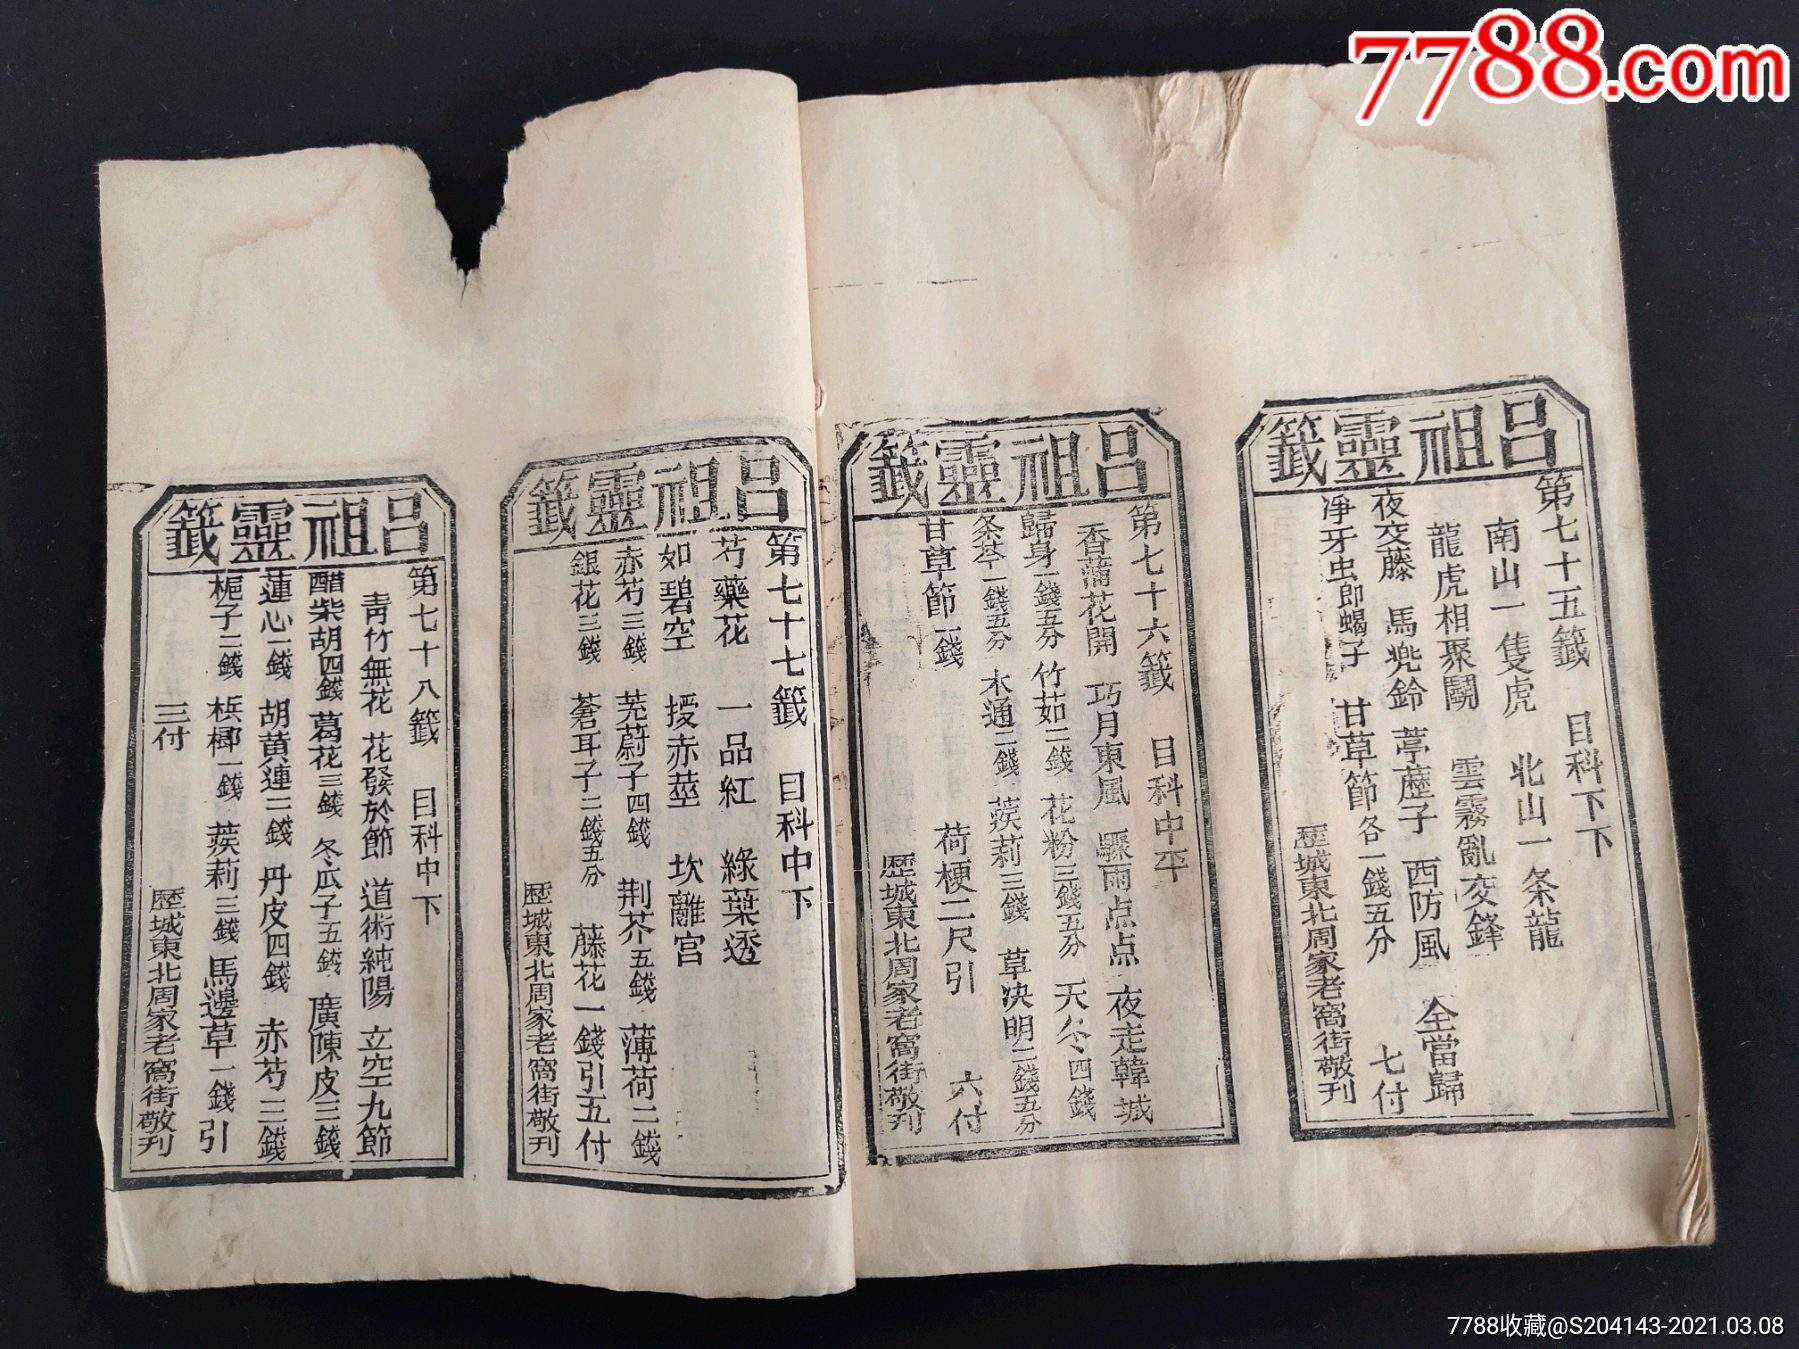 7788.com
呂祖靈籤
第七十五籤 目科下下
南山一隻虎 北山一条龍
龍虎相聚鬭 雲霧亂交鋒
夜交藤 馬兜鈴 葶藶子 西防風 全當歸
凈牙虫郎蝎子 甘草節各一錢五分 七付
歷城東北周家老窩街敬刊
呂祖靈籤
第七十六籤 目科中平
香蒲花開 巧月東風 驟雨点点 夜走韓城
歸身一錢五分 竹茹二錢 花粉三錢五分 天冬四錢
条芩一錢五分 木通二錢 蒺莉三錢 草决明二錢五分
甘草節一錢 荷梗二尺引 六付
歷城東北周家老窩街敬刊
呂祖靈籤
第七十七籤 目科中下
芍藥花 一品紅 綠葉透
如碧空 授赤莖 坎離宮
赤芍三錢 茺蔚子四錢 荆芥五錢 薄荷二錢
銀花三錢 蒼耳子二錢五分 藤花一錢引五付
歷城東北周家老窩街敬刊
呂祖靈籤
第七十八籤 目科中下
青竹無花 花發於節 道術純陽 立空九節
醋柴胡四錢 葛花三錢 冬瓜子五錢 廣陳皮三錢
蓮心一錢 胡黄連二錢 丹皮四錢 赤芍三錢
梔子二錢 梹榔一錢 蒺莉三錢 馬邊草一錢引
三付
歷城東北周家老窩街敬刊
7788收藏@S204143-2021.03.08